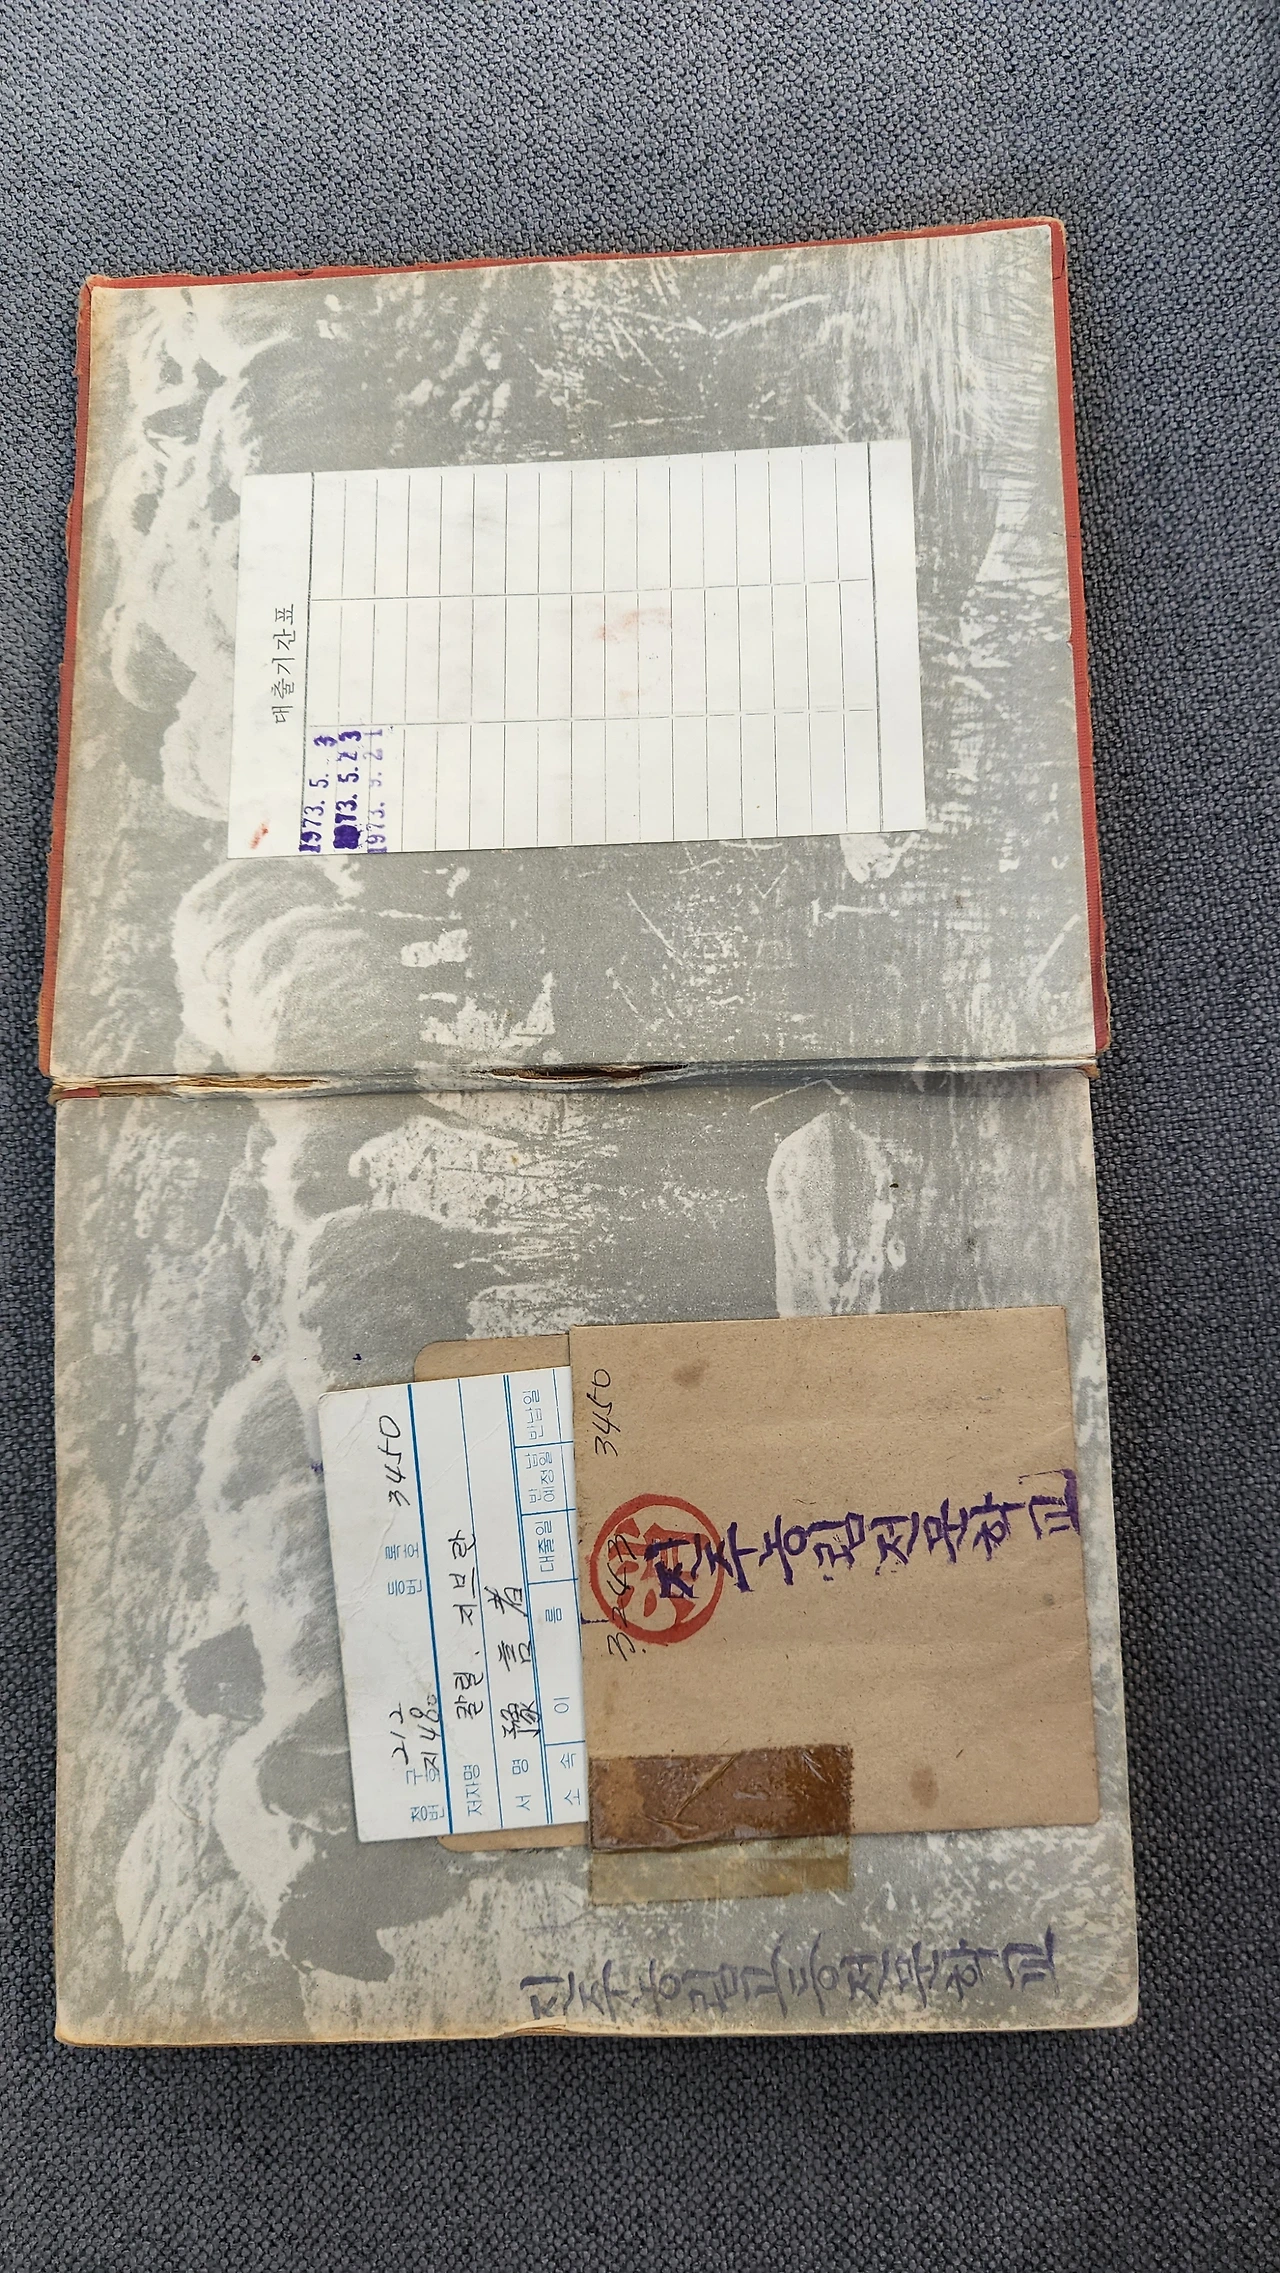 대출기간표
1973. 5. 3
1973. 5. 23
1973. 9. 21
청구 212
번호 지48ㅇ
등록
번호 3450
저자명 칼릴. 지브란
서명 豫言者
소속 이름 대출일 반납
예정일 반납일
3450
진주농림전문학교
진주농림고등전문학교